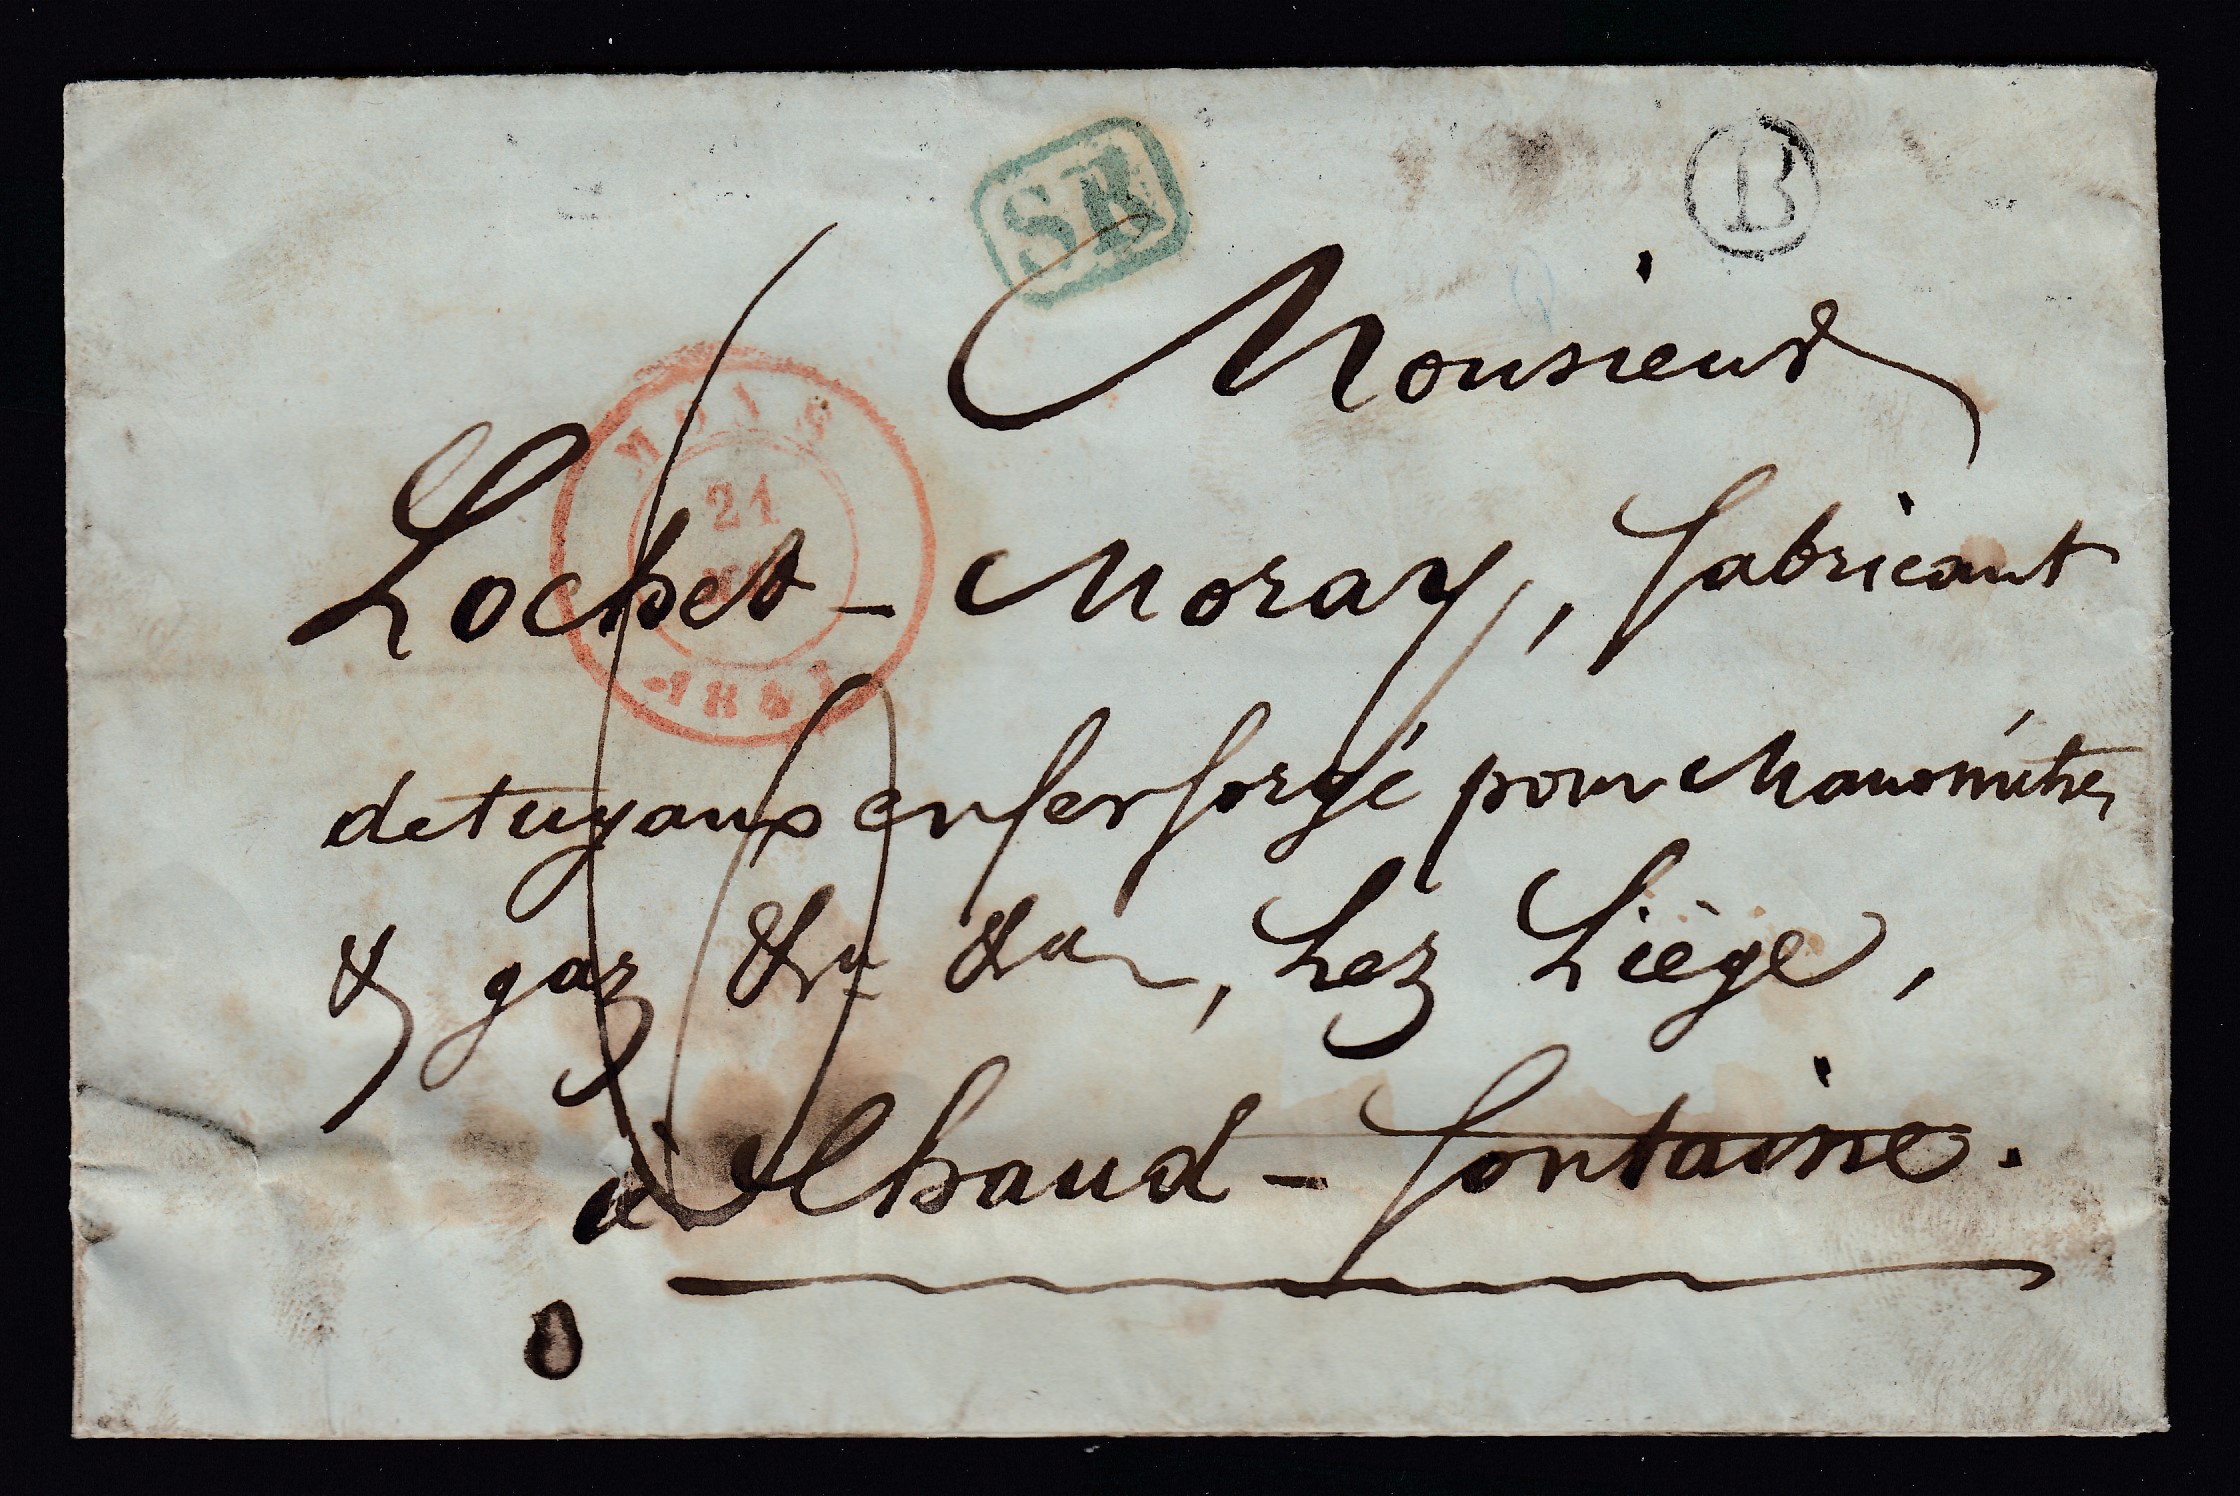 SR
B
Monsieur
MONS
21
Lochet - Moray, fabricant
de tuyaux en fer forgé pour Manomètres
& gaz &a &a, Lez Liége,
à Chaud-fontaine.